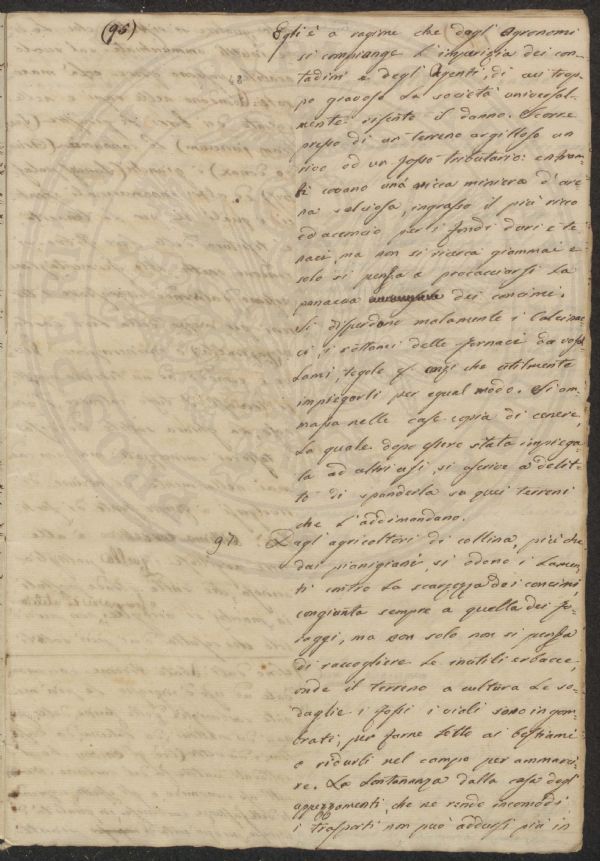 (95)
Egli è a ragione che dagl'Agronomi
si compiange l'imperizia dei con-
tadini e degl'Agenti, di cui trop-
po giavoso la società universal-
mente risente il danno. Scorre
presso di un terreno argilloso un
rivo od un fosso tributario: entram-
bi covano una ricca miniera d'are-
na selciosa, ingrasso il più ricco
ed acconcio per i fondi duri e te-
naci, ma non si ricerca giammai e
solo si pensa a procacciarsi la
panacea dei concimi.
Si disperdono malamente i calcinac-
ci, i rottami delle fornaci da vasel-
lami, tegole anzi che utilmente
impiegarli per egual modo. Si am-
massa nelle case copia di cenere,
la quale dopo essere stata impiega-
ta ad altri usi, si ascrive a delit-
to di spanderla su quei terreni
che l'addimandano.
97 Dagl'agricoltori di collina, più che
dai pianigiani, si odono i lamen-
ti contro la scarsezza dei concimi,
congiunta sempre a quella dei fo-
raggi, ma non solo non si pensa
di raccogliere le inutili erbacce,
onde il terreno a cultura le so-
daglie i fossi i violi sono ingom-
brati, per farne letto ai bestiami
e ridurli nel campo per ammarci-
re. La lontananza dalla casa degl'
appezzamenti, che ne rende incomodi
i trasporti non può addursi più in